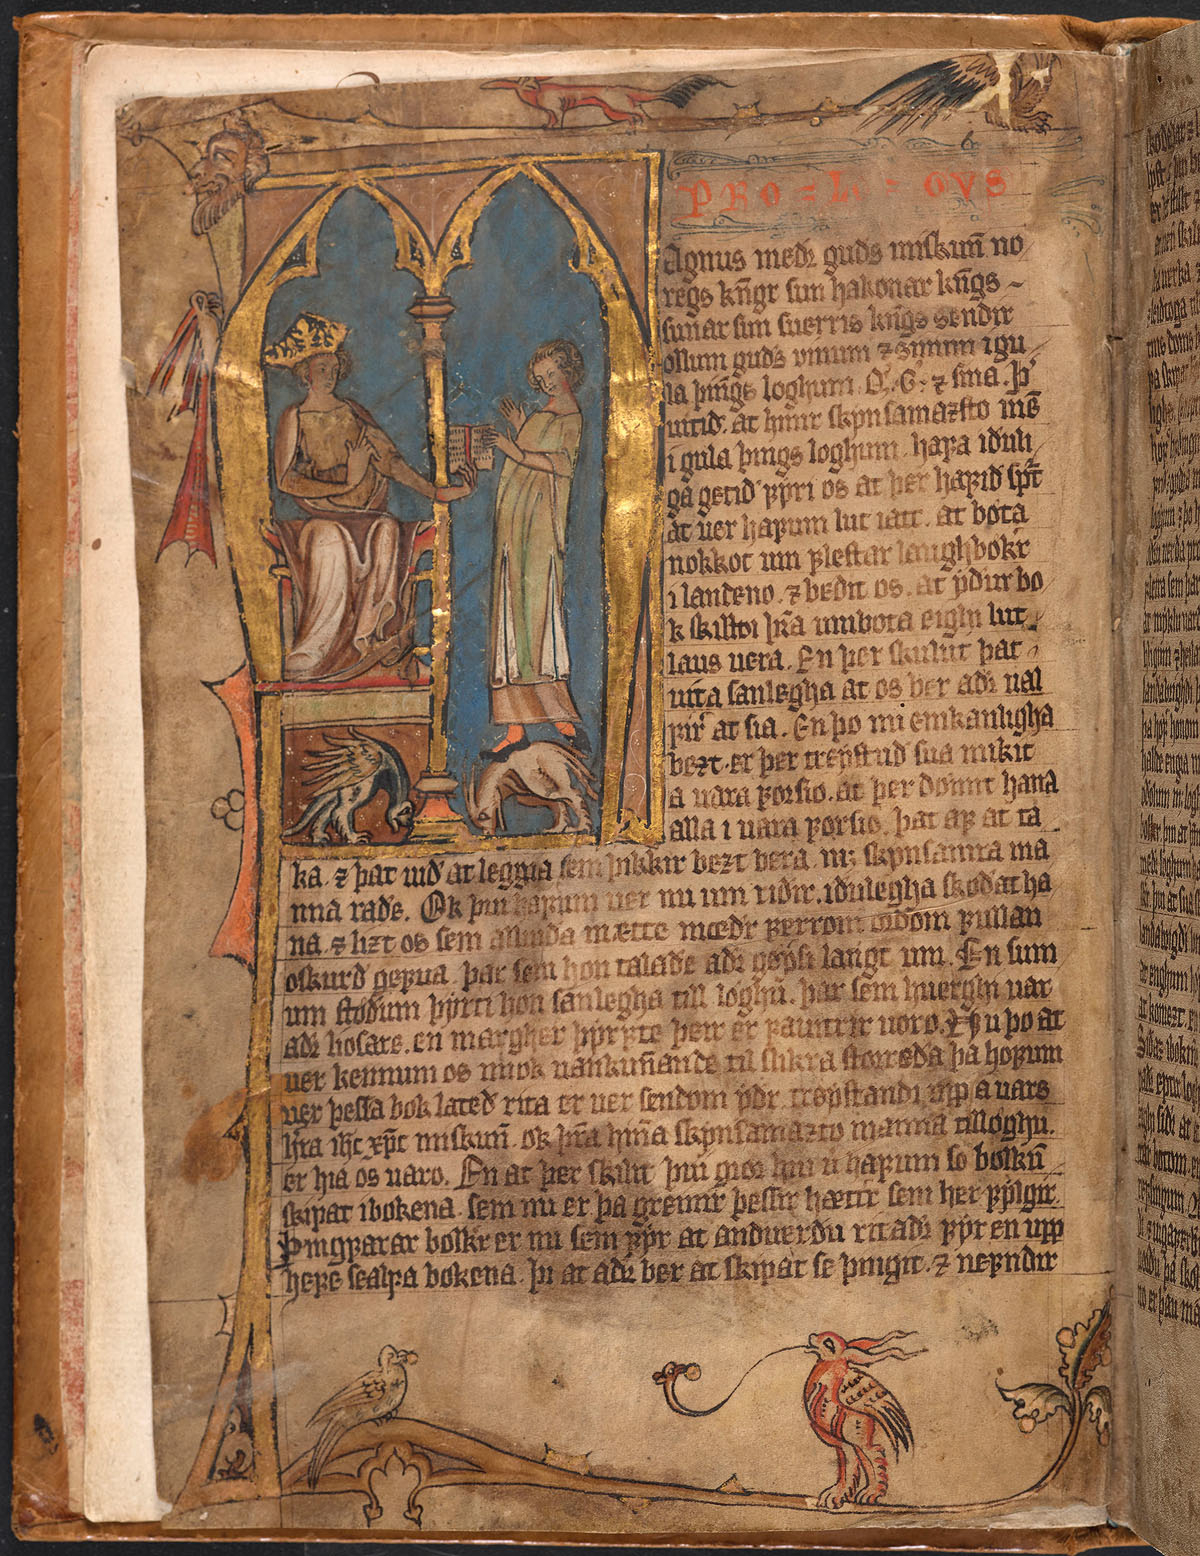 PRO=LO=GVS
Magnus medr guds miskun no
regs kngr sun hakonar kngs
sunar sun suerris kngs sendir
ollum guds uinum ⁊ sinum i gu
la þings loghum Q. G. ⁊ sina. þr
uitid. at hinir skynsamazsto men
i gula þings loghum. hafa iduli
ga getid fyri os at þer hafid spt
at uer hafum lut iatt. at bøta
nokkot um flestar laughbokr
i landeno. ⁊ bedit os. at ydur bo
k skilldi fra umbota eighi lut
laus uera. En þer skulut þat
uita sanlegha at os ber adr ual
fir at sia. En þo nu einkanligha
bezt. er þer treystud sua mikit
a uara forsio. at þer domt hana
alla i uara forsio. þat af at ta
ka. ⁊ þat uid at leggia sem þikkir bezt bera. mz skynsamra ma
nna rade. Ok þui hafum uer nu um ridir. idulegha skodat ha
na. ⁊ lizt os sem allunda mætte medr ferrom oirdom fullan
oskurd gefua. þar sem hon talade adr gøysi langt um. En sum
um stodum þyrti hon sanlegha till loghu. þar sem huerghi uar
adr hosare. en margher þyrfte þeir er fauitrir uoro. Nu þo at
uer kennum os miok uankunande til slikra storreda þa hofum
uer þessa bok lated rita er uer sendom ydr. treystandi upp a uars
hra ihc xpc miskun. ok fra hina skynsamazto manna tilloghu.
er hia os uaro. En at þer skilit þui giør huiu hafum so bolkum
skipat i bokena. sem nu er þa greinir þessir hættir sem her fylgir.
þingfarar bolkr er nu sem fyr at anduerdu ritadr fyr en upp
hefe sealfa bokena. þi at adr ber at skipat se þingit. ⁊ nefndir